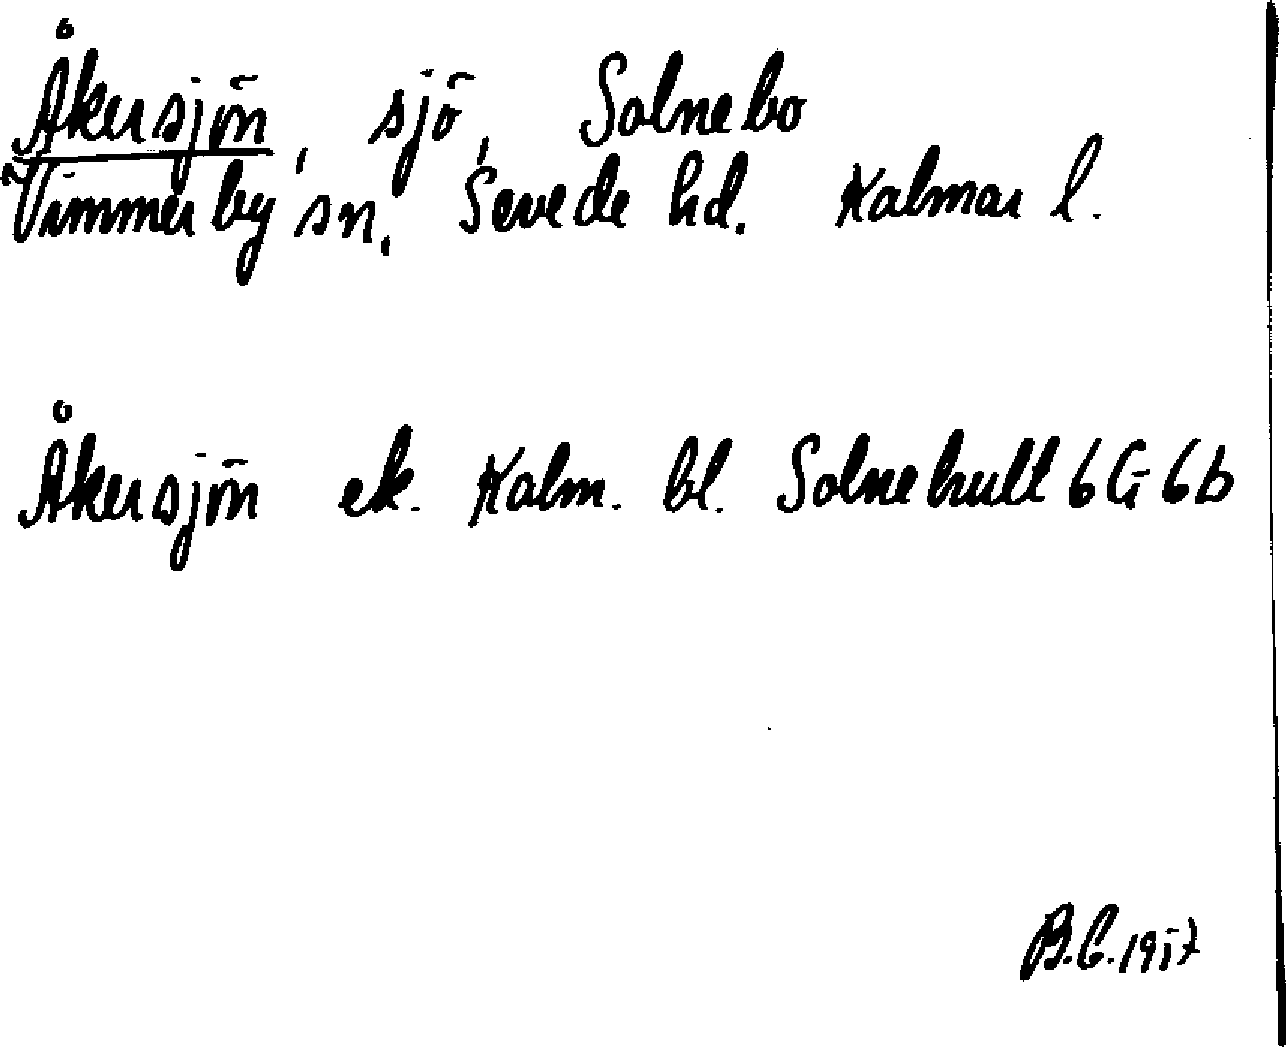 Åkersjön, sjö, Solnebo
Vimmerby sn, Sevede hd. Kalmar l.
Åkersjön ek. Kalm. bl. Solnehult 6G 6b
B.C. 1957